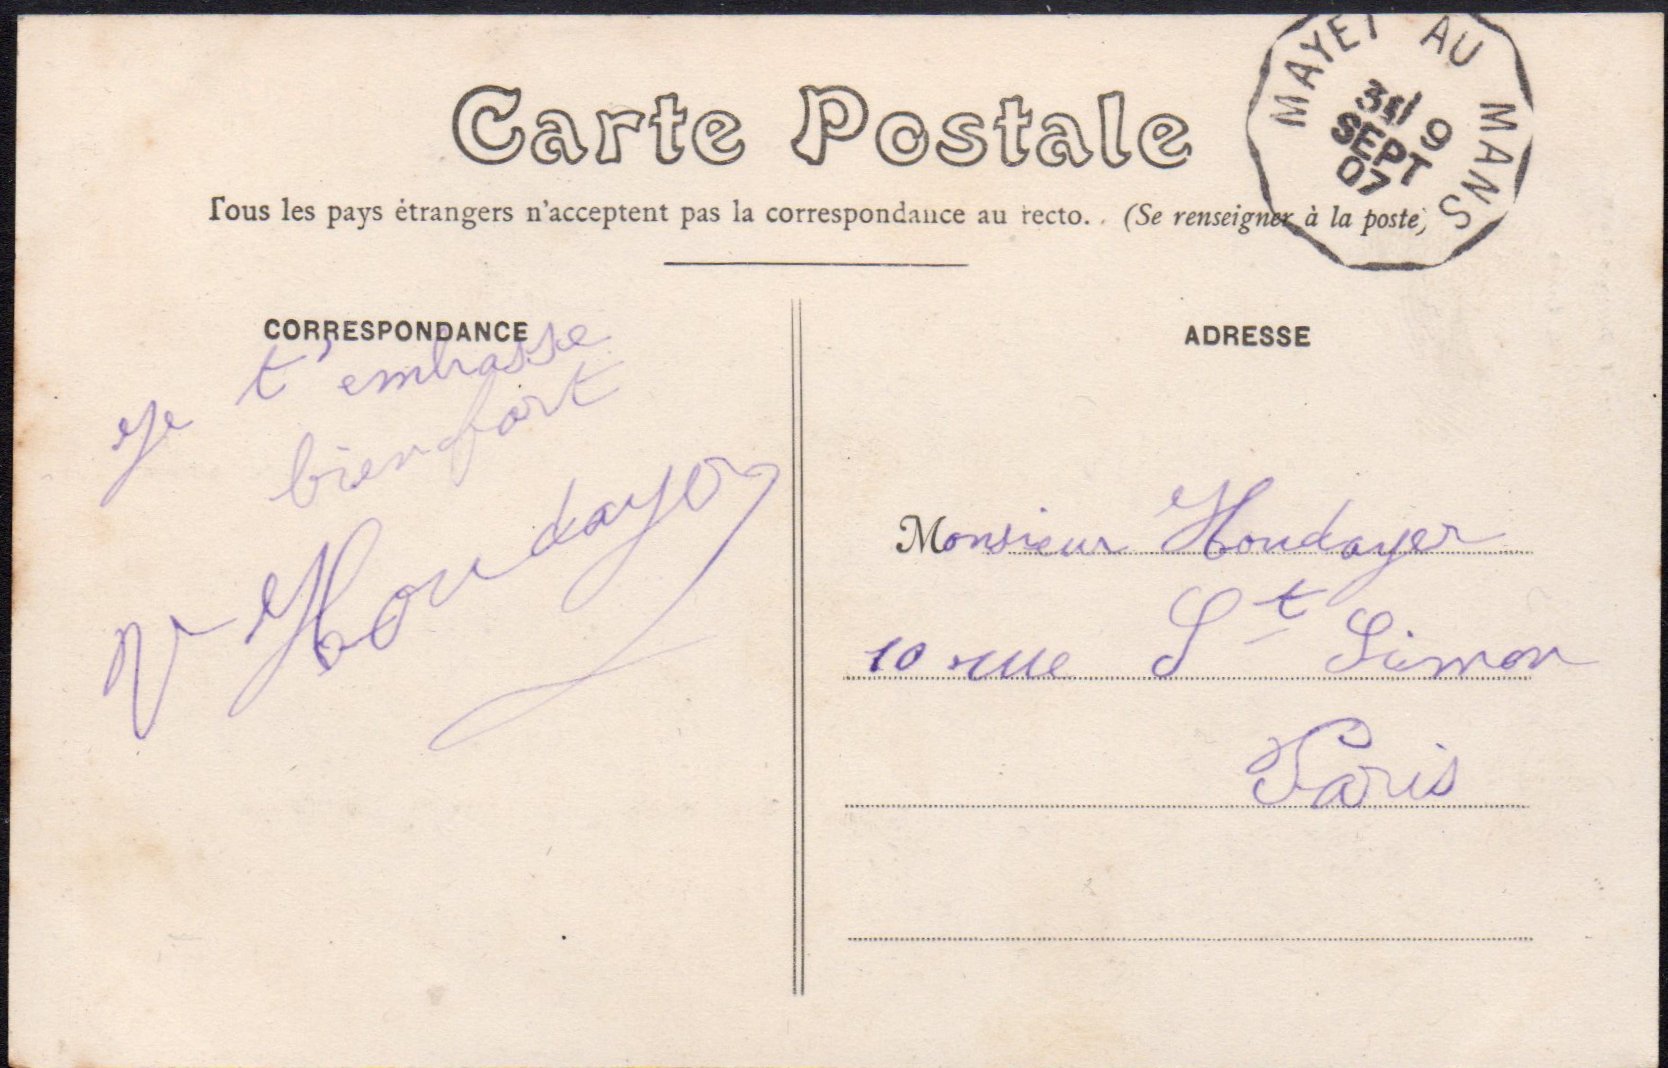 Carte Postale
Tous les pays étrangers n'acceptent pas la correspondance au recto. (Se renseigner à la poste)
MAYET AU MANS
9
SEPT
07
CORRESPONDANCE
Je t'embrasse
bien fort
V Houdayer
ADRESSE
Monsieur Houdayer
10 rue St Simon
Paris